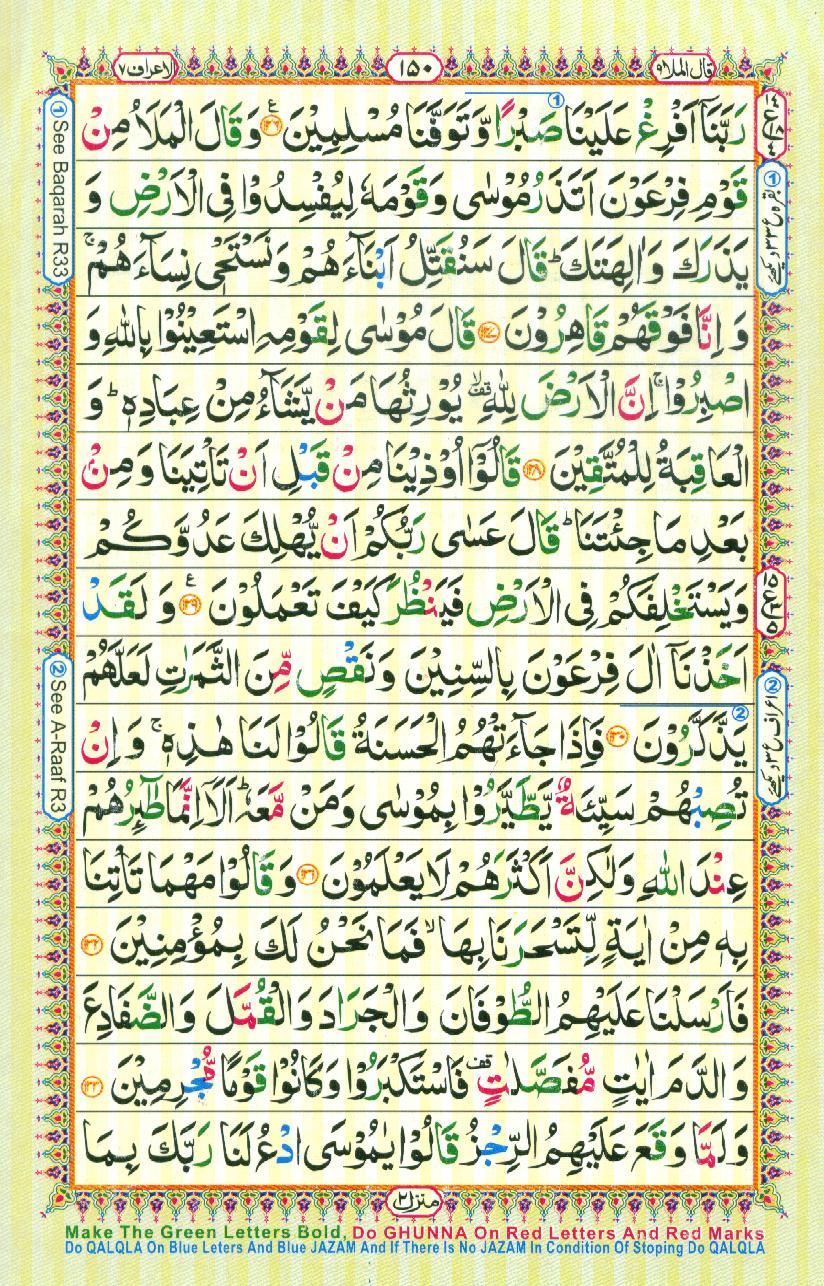 قال الملا ۹
۱۵۰
الاعراف ۷
رَبَّنَاۤ اَفْرِغْ عَلَیْنَا صَبْرًا وَّ تَوَفَّنَا مُسْلِمِیْنَ ﴿۱۲۶﴾ وَ قَالَ الْمَلَاُ مِنْ
قَوْمِ فِرْعَوْنَ اَتَذَرُ مُوْسٰی وَ قَوْمَهٗ لِیُفْسِدُوْا فِی الْاَرْضِ وَ
یَذَرَكَ وَ اٰلِهَتَكَ ؕ قَالَ سَنُقَتِّلُ اَبْنَآءَهُمْ وَ نَسْتَحْیٖ نِسَآءَهُمْ ۚ
وَ اِنَّا فَوْقَهُمْ قٰهِرُوْنَ ﴿۱۲۷﴾ قَالَ مُوْسٰی لِقَوْمِهِ اسْتَعِیْنُوْا بِاللّٰهِ وَ
اصْبِرُوْا ۚ اِنَّ الْاَرْضَ لِلّٰهِ ۙ۫ یُوْرِثُهَا مَنْ یَّشَآءُ مِنْ عِبَادِهٖ ؕ وَ
الْعَاقِبَةُ لِلْمُتَّقِیْنَ ﴿۱۲۸﴾ قَالُوْۤا اُوْذِیْنَا مِنْ قَبْلِ اَنْ تَاْتِیَنَا وَ مِنْۢ
بَعْدِ مَا جِئْتَنَا ؕ قَالَ عَسٰی رَبُّكُمْ اَنْ یُّهْلِكَ عَدُوَّكُمْ
وَ یَسْتَخْلِفَكُمْ فِی الْاَرْضِ فَیَنْظُرَ كَیْفَ تَعْمَلُوْنَ ﴿۱۲۹﴾ وَ لَقَدْ
اَخَذْنَاۤ اٰلَ فِرْعَوْنَ بِالسِّنِیْنَ وَ نَقْصٍ مِّنَ الثَّمَرٰتِ لَعَلَّهُمْ
یَذَّكَّرُوْنَ ﴿۱۳۰﴾ فَاِذَا جَآءَتْهُمُ الْحَسَنَةُ قَالُوْا لَنَا هٰذِهٖ ۚ وَ اِنْ
تُصِبْهُمْ سَیِّئَةٌ یَّطَّیَّرُوْا بِمُوْسٰی وَ مَنْ مَّعَهٗ ؕ اَلَاۤ اِنَّمَا طٰٓئِرُهُمْ
عِنْدَ اللّٰهِ وَ لٰكِنَّ اَكْثَرَهُمْ لَا یَعْلَمُوْنَ ﴿۱۳۱﴾ وَ قَالُوْا مَهْمَا تَاْتِنَا
بِهٖ مِنْ اٰیَةٍ لِّتَسْحَرَنَا بِهَا ۙ فَمَا نَحْنُ لَكَ بِمُؤْمِنِیْنَ ﴿۱۳۲﴾
فَاَرْسَلْنَا عَلَیْهِمُ الطُّوْفَانَ وَ الْجَرَادَ وَ الْقُمَّلَ وَ الضَّفَادِعَ
وَ الدَّمَ اٰیٰتٍ مُّفَصَّلٰتٍ ۫ فَاسْتَكْبَرُوْا وَ كَانُوْا قَوْمًا مُّجْرِمِیْنَ ﴿۱۳۳﴾
وَ لَمَّا وَقَعَ عَلَیْهِمُ الرِّجْزُ قَالُوْا یٰمُوْسَی ادْعُ لَنَا رَبَّكَ بِمَا
① بقرہ ع ۳۳ دیکھئے
② اعراف ع ۳ دیکھئے
① See Baqarah R33
② See A-Raaf R3
منزل ۲
Make The Green Letters Bold, Do GHUNNA On Red Letters And Red Marks
Do QALQLA On Blue Leters And Blue JAZAM And If There Is No JAZAM In Condition Of Stoping Do QALQLA